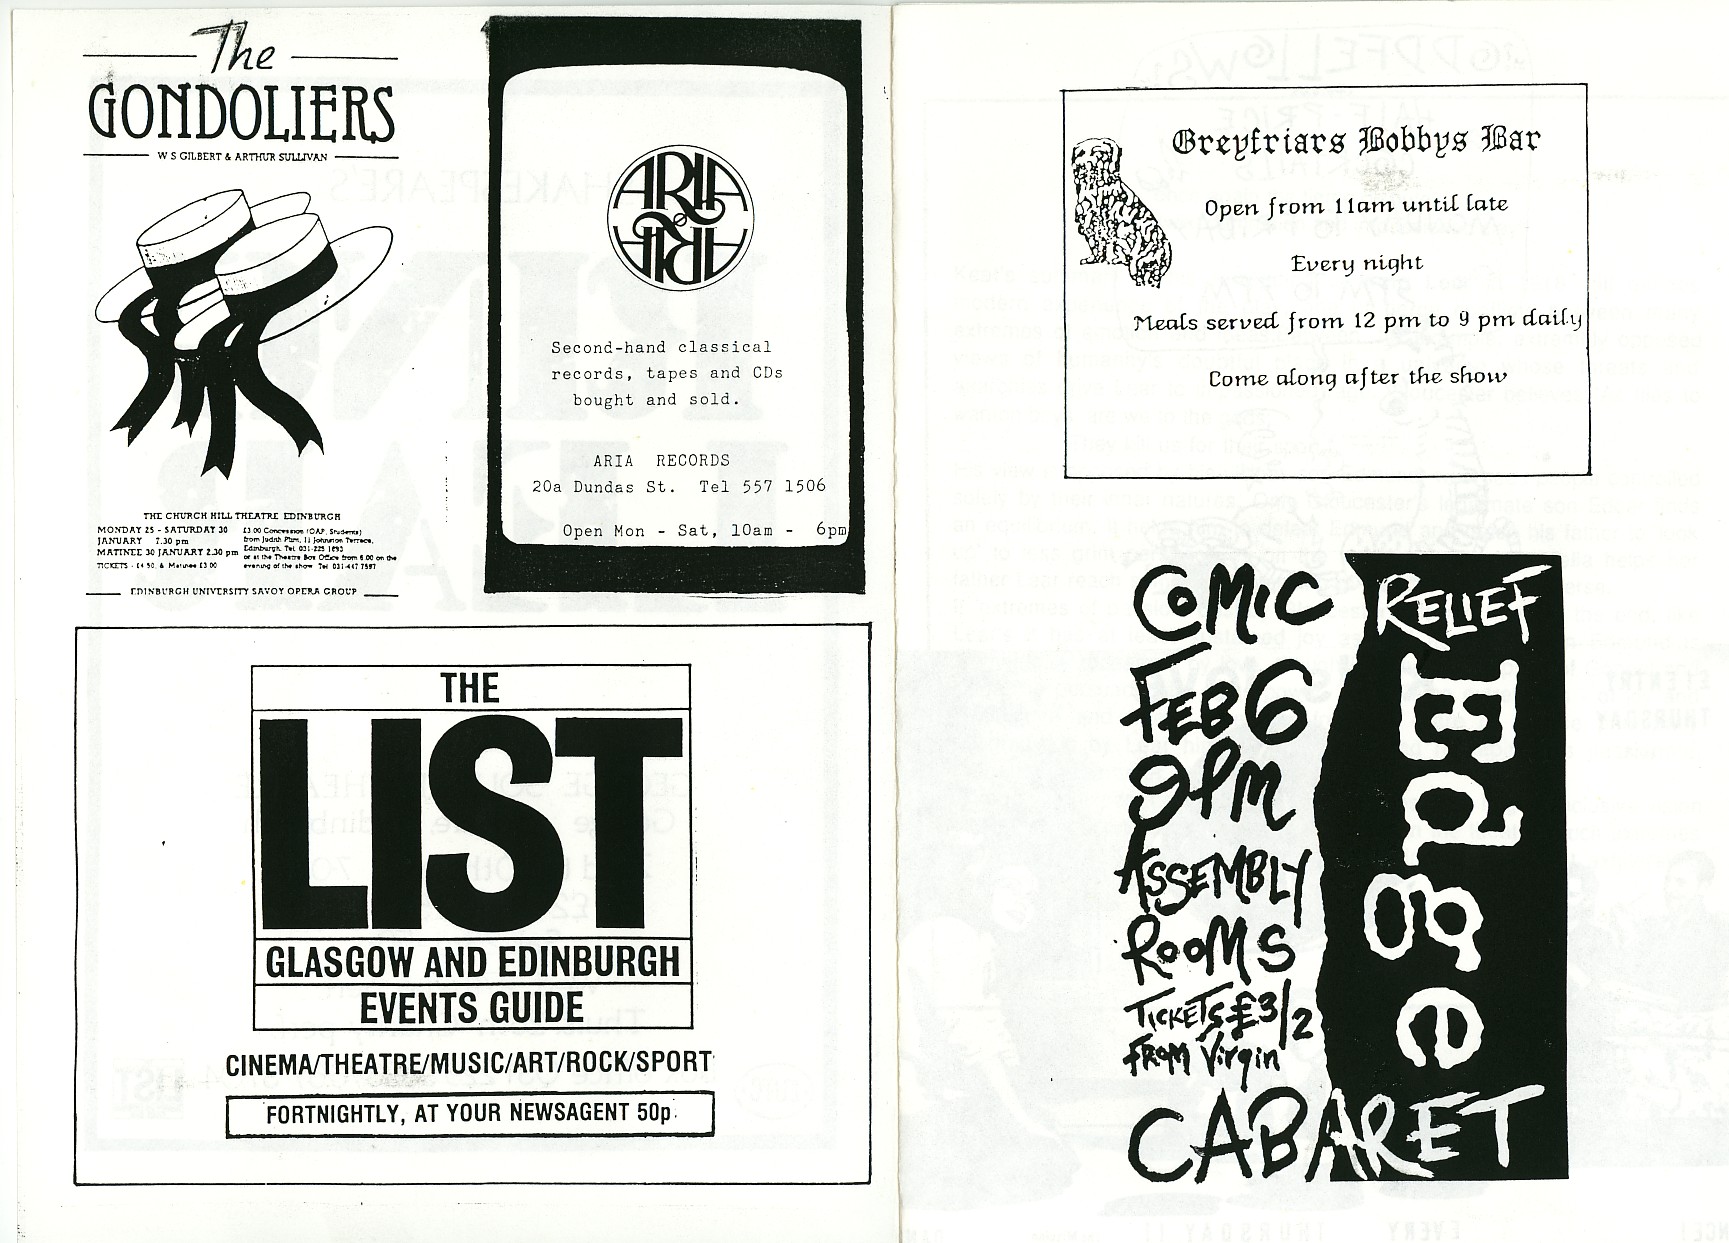 The
GONDOLIERS
W S GILBERT & ARTHUR SULLIVAN
THE CHURCH HILL THEATRE EDINBURGH
MONDAY 25 - SATURDAY 30
JANUARY 7.30 pm
MATINEE 30 JANUARY 2.30 pm
TICKETS - £4.50, & Matinee £3.00
£3.00 Concession (OAP, Students)
from Judith Plim, 11 Johnston Terrace,
Edinburgh. Tel. 031-225 1693
or at the Theatre Box Office from 6.00 on the
evening of the show Tel 031-447 7597
EDINBURGH UNIVERSITY SAVOY OPERA GROUP
ARIA
ARIA
Second-hand classical
records, tapes and CDs
bought and sold.
ARIA RECORDS
20a Dundas St. Tel 557 1506
Open Mon - Sat, 10am - 6pm
THE
LIST
GLASGOW AND EDINBURGH
EVENTS GUIDE
CINEMA/THEATRE/MUSIC/ART/ROCK/SPORT
FORTNIGHTLY, AT YOUR NEWSAGENT 50p.
Greyfriars Bobbys Bar
Open from 11am until late
Every night
Meals served from 12 pm to 9 pm daily
Come along after the show
COMIC RELIEF
FEB 6
9PM
ASSEMBLY
ROOMS
TICKETS £3/2
FROM Virgin
Edge
CABARET